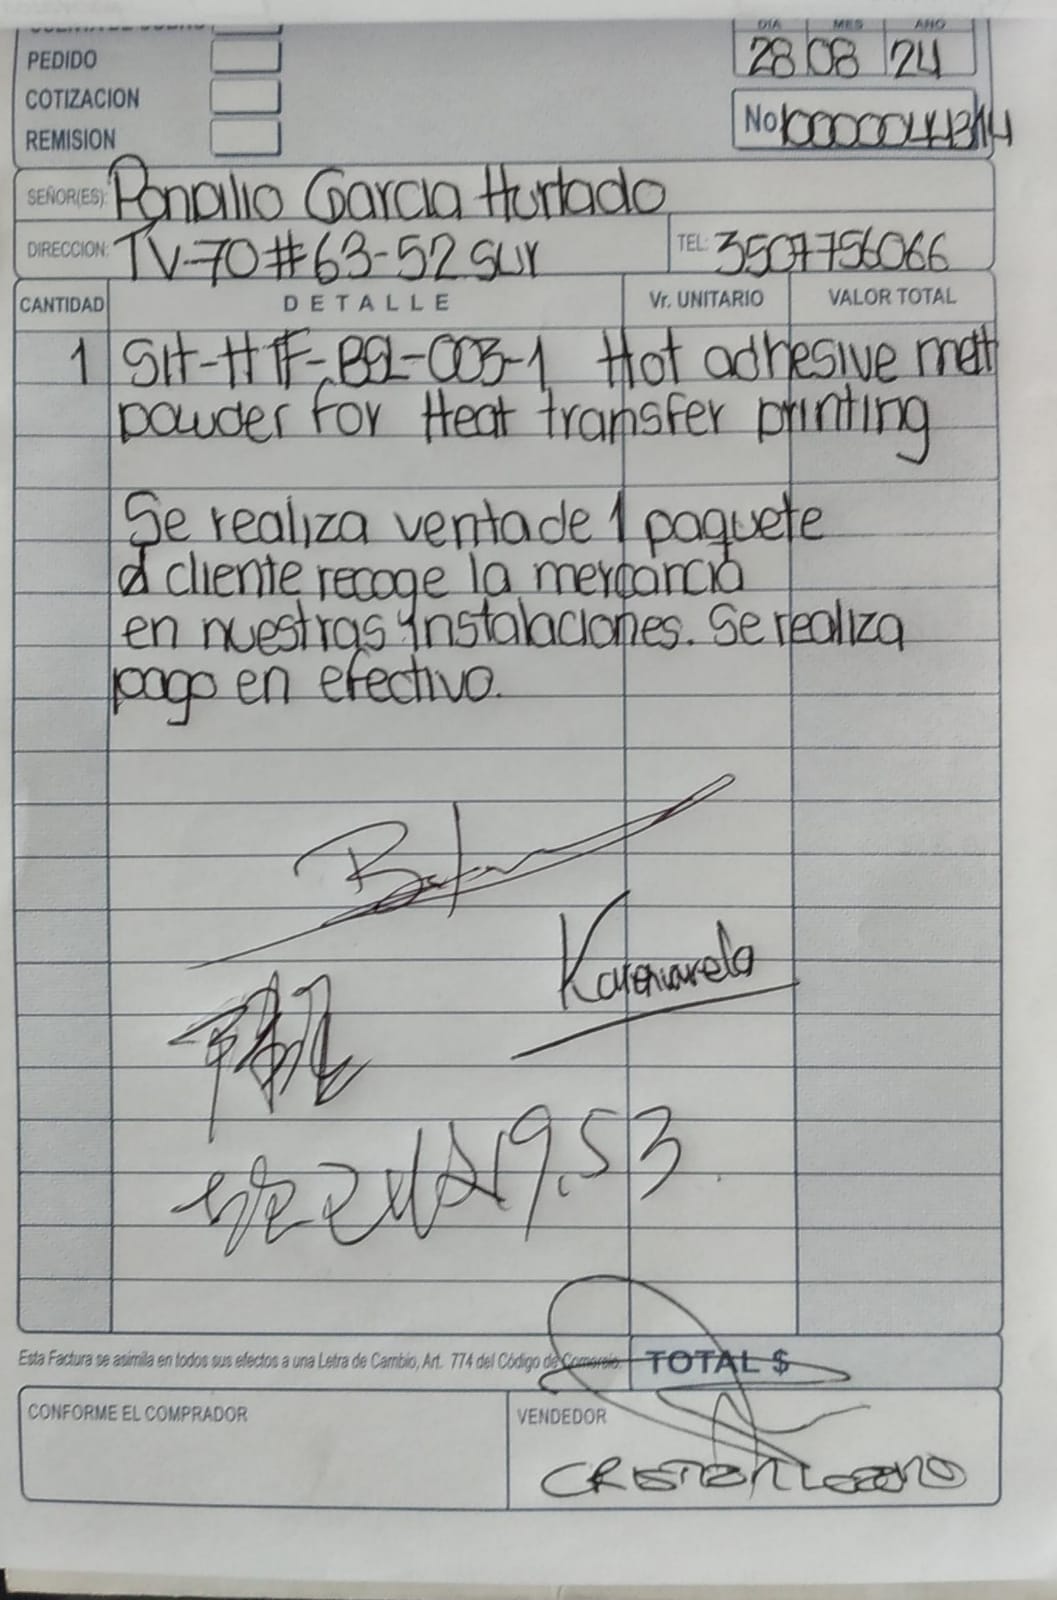 DIA MES AÑO
PEDIDO
28 08 24
COTIZACION
No
REMISION
SEÑOR(ES): Ponpilio Garcia Hurtado
DIRECCION: TV-70#63-52 sur TEL: 3507756066
CANTIDAD DETALLE Vr. UNITARIO VALOR TOTAL
1 Hot adhesive melt
powder for Heat transfer printing
Se realiza venta de 1 paquete
el cliente recoge la mercancia
en nuestras instalaciones. Se realiza
pago en efectivo.
19.53
Esta Factura se asimila en todos sus efectos a una Letra de Cambio, Art. 774 del Código de Comercio.
TOTAL $
CONFORME EL COMPRADOR
VENDEDOR